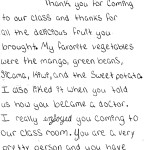 Thank you for coming
to our class and thanks for
all the delicious fruit you
brought. My favorite vegetables
were the mango, green beans,
Jicama, kiwi, and the sweet potato.
I also liked it when you told
us how you became a doctor.
I really enjoyed you coming to
our class room. You are a very
pretty person and you have